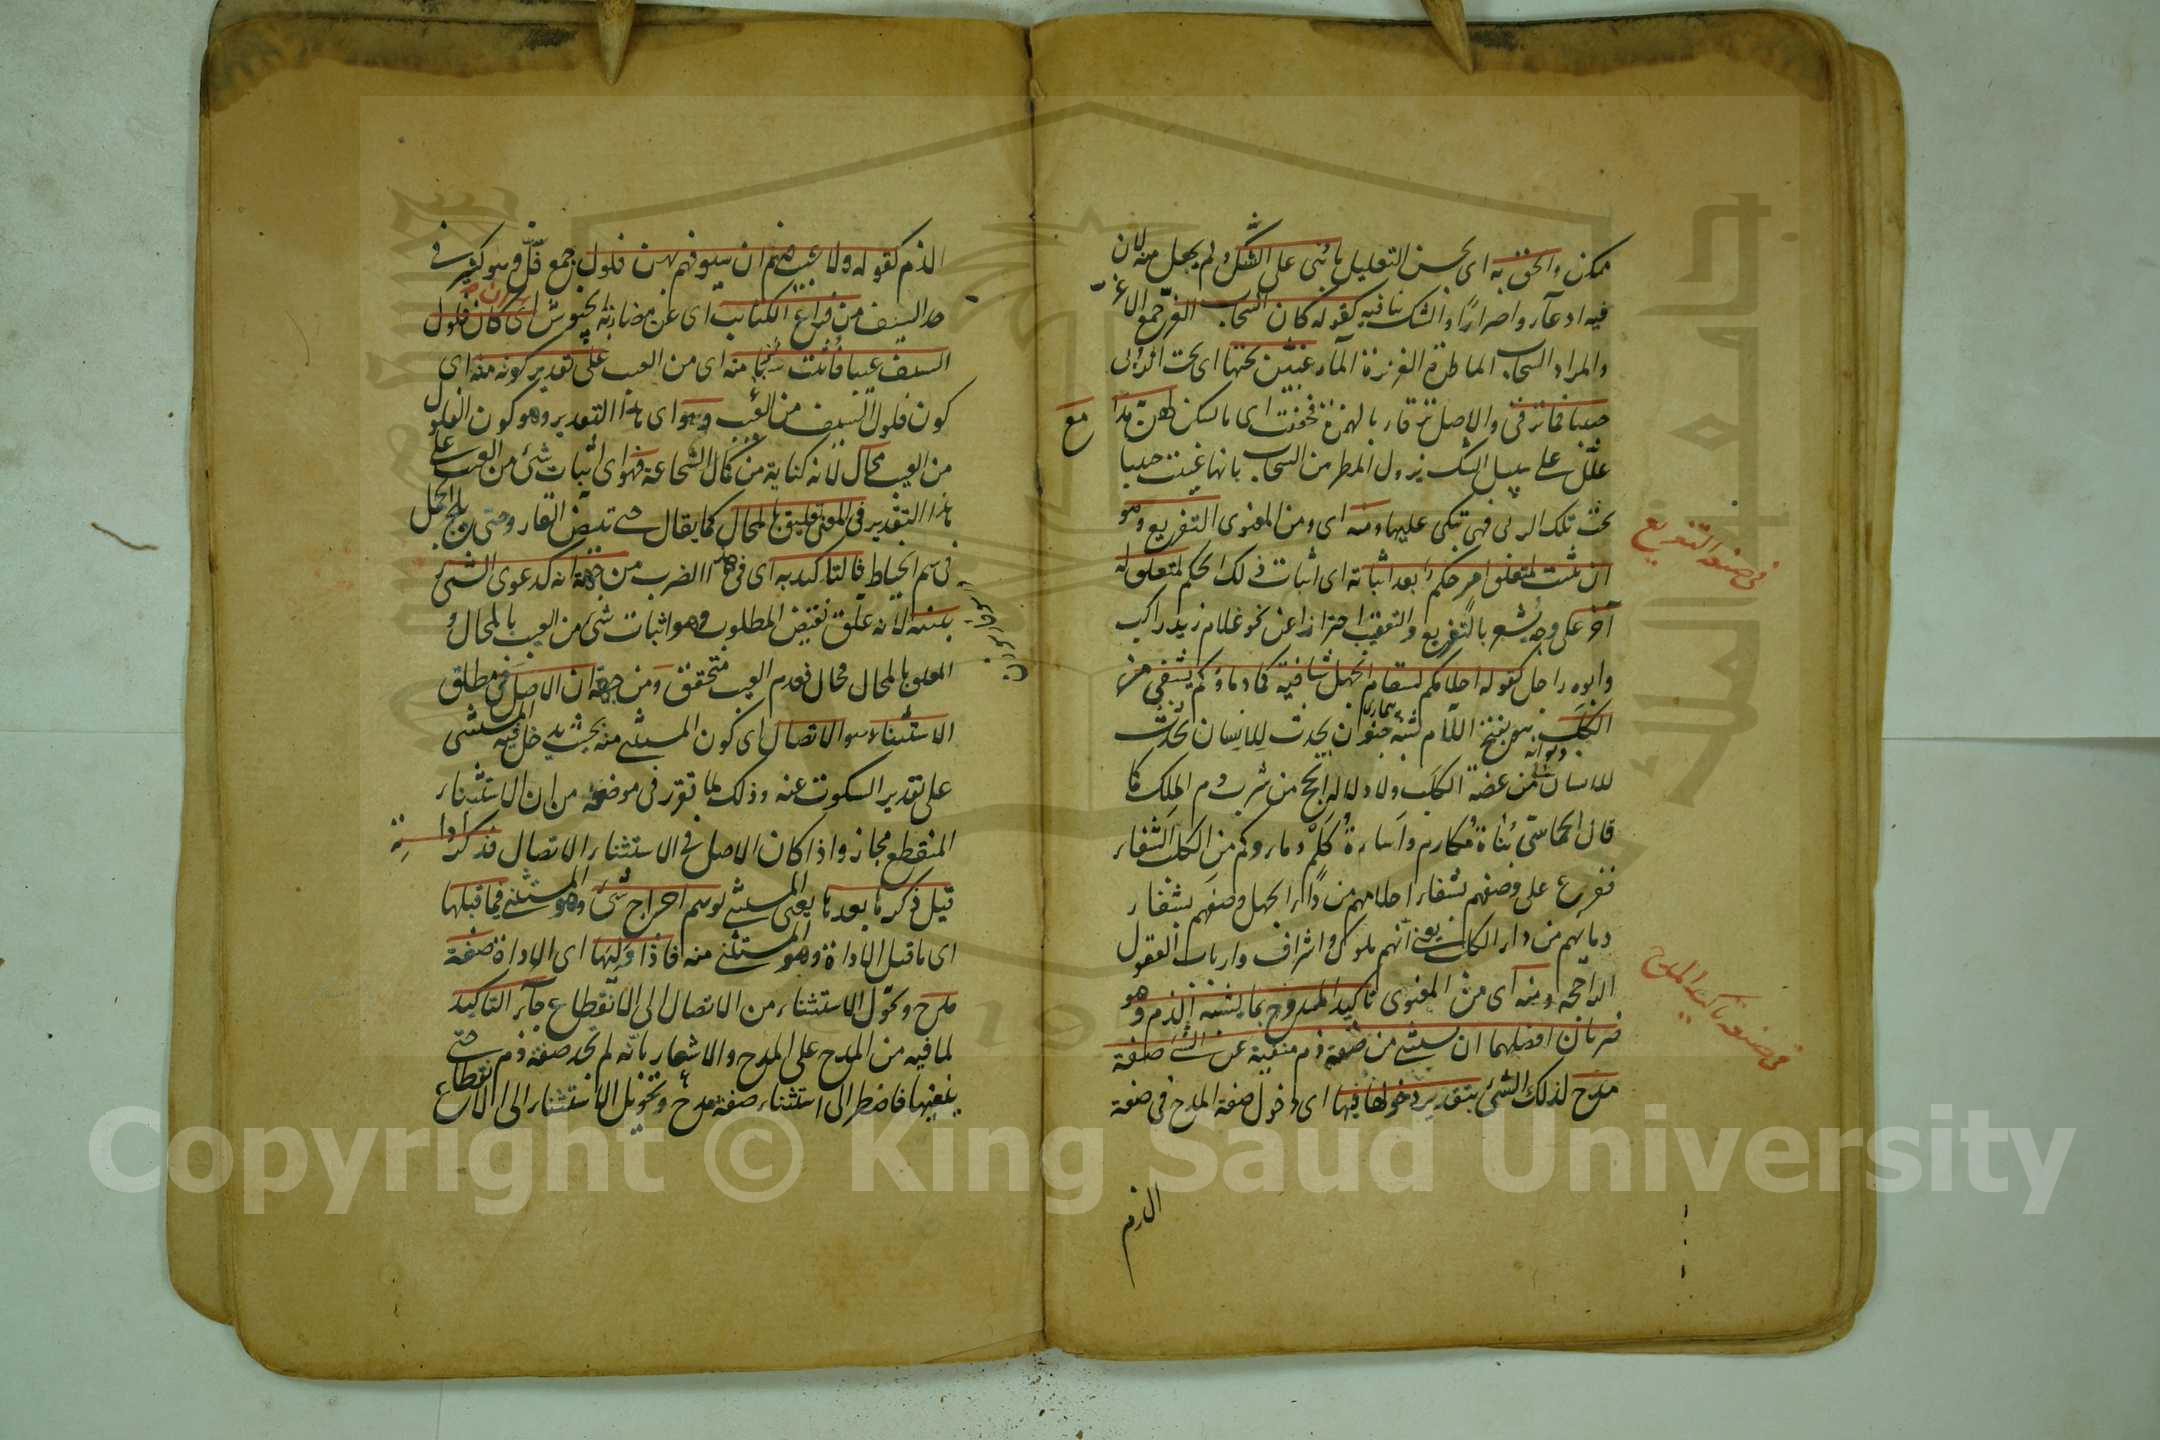 ممكن والحق به اى بحسن التعليل ما بنى على الشك ولم يجعل منه لان
فيه ادعاء واصرارًا والشك ينافيه كقوله كان السحاب الغر جمع الاغر
والمراد السحاب الماطرة الغزيرة الماء غيبن تحتها اى تحت الربى
حبيبا فما ترقى والاصل ترقاء بالهمزة فخففت اى ما تسكن لهن مدامع
علل على سبيل الشك نزول المطر من السحاب بانها غيبت حبيبا
تحت تلك الربى فهى تبكى عليها ومنه اى ومن المعنوى التفريع وهو
ان يثبت لمتعلق امر حكم بعد اثباته اى اثبات ذلك الحكم لمتعلق له
آخر على وجه يشعر بالتفريع والتعقيب احترازا عن نحو غلام زيد راكب
وابوه راجل كقوله احلامكم لسقام الجهل شافية كما دماؤكم تشفى من
الكلب هو بفتح اللام شبه جنون يحدث للانسان
للانسان من عضة الكلب ولا دواء له انجح من شرب دم الملك كما
قال الحماسى بناة مكارم واساة كلم دماؤكم من الكلب الشفاء
ففرع على وصفهم بشفاء احلامهم من داء الجهل وصفهم بشفاء
دمائهم من داء الكلب يعنى انهم ملوك واشراف وارباب العقول
الراجحة ومنه اى من المعنوى تاكيد المدح بما يشبه الذم وهو
ضربان افضلهما ان يستثنى من صفة ذم منفية عن الشئ صفة
مدح لذلك الشئ بتقدير دخولها فيها اى دخول صفة المدح فى صفة
الذم
فى صنعة التفريع
فى صنعة تاكيد المدح
الذم كقوله ولا عيب فيهم غير ان سيوفهم بهن فلول جمع فل وهو كسر فى
حد السيف من قراع الكتائب اى عن مضاربة الجيوش اى ان كان فلول
السيف عيبا فاثبت شيئا منه اى من العيب على تقدير كونه منه اى
كون فلول السيف من العيب وهو اى هذا التقدير وهو كون الفلول
من العيب محال لانه كناية من كمال الشجاعة فهو اى اثبات شئ من العيب على
هذا التقدير فى المعنى تعليق بالمحال كما يقال حتى تبيض القار وحتى يلج الجمل
فى سم الخياط فالتاكيد به اى فى هذا الضرب من جهة انه كدعوى الشئ
ببينة لانه علق نقيض المطلوب وهو اثبات شئ من العيب بالمحال و
المعلق بالمحال محال فعدم العيب متحقق ومن جهة ان الاصل فى مطلق
الاستثناء هو الاتصال اى كون المستثنى منه بحيث يدخل فيه المستثنى
على تقدير السكوت عنه وذلك لما تقرر فى موضعه من ان الاستثناء
المنقطع مجاز واذا كان الاصل فى الاستثناء الاتصال فذكر اداته
قبل ذكر ما بعدها يعنى المستثنى يوهم اخراج شئ وهو المستثنى مما قبلها
اى ما قبل الاداة وهو المستثنى منه فاذا وليها اى الاداة صفة
مدح وتحول الاستثناء من الاتصال الى الانقطاع جاء التاكيد
لما فيه من المدح على المدح والاشعار بانه لم يجد صفة ذم حتى
ينفيها فاضطر الى استثناء صفة مدح وتحويل الاستثناء الى الانقطاع
Copyright © King Saud University